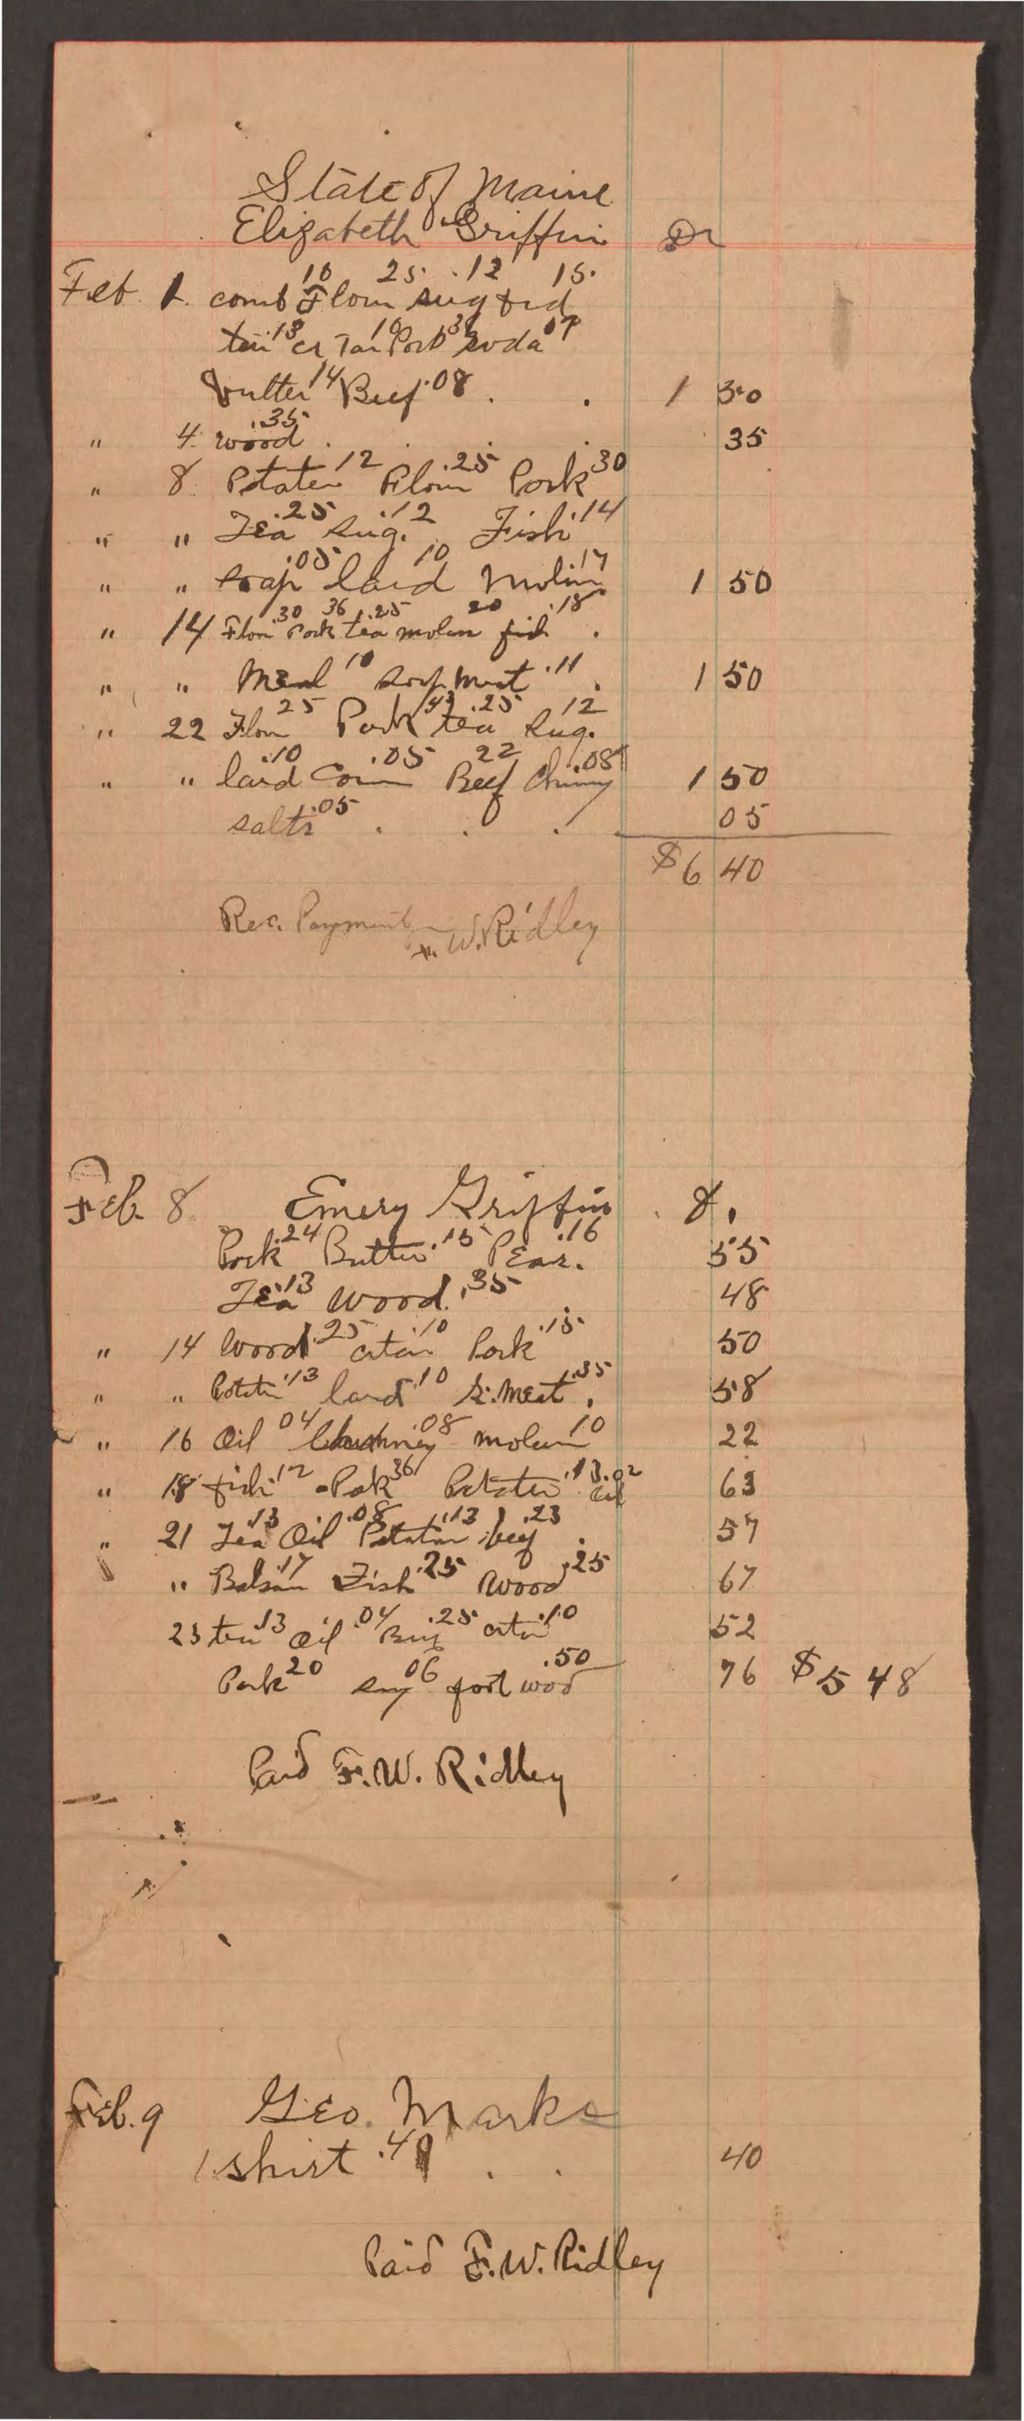 State of Maine
Elizabeth Griffin Dr
10 25 .12 15.
Feb 1. comb Flour sug
13 10 07
cr Tar Pork soda
Butter 14 Beef .08 . . 1 50
.35
" 4 wood . . . . 35
" 8 Potatoe 12 Flour .25 Pork 30
" " Tea .25 Sug. .12 Fish .14
" " Soap .05 lard 10 Molass .17 1 50
.30 36 .25 20 .18
" 14 Flour Pork tea molass fish .
" " Meal 10 meat .11 . 1 50
" 22 Flour 25 Pork 43 tea .25 Sug. 12
" " lard .10 Corn .05 Beef 22 Chimny .08 1 50
salts .05 . . . 05
$6 40
Rec. Payment
F. W. Ridley
Feb. 8 Emery Griffin
Pork .24 Butter .15 Peas. .16 55
Tea .13 Wood. .35 48
" 14 Wood .25 .10 Pork .15 50
" " Potatoe .13 lard .10 S. Meat .35 . 58
" 16 Oil 04 Chimney .08 molass 10 22
" 18 fish .12 Pork 36 Potatoe .13 Oil .02 63
" 21 Tea .13 Oil .08 Potatoe .13 beef .23 . 57
" Balsam .17 Fish .25 Wood .25 67
23 tea .13 Oil .04 .25 .10 52
Pork 20 sug 06 foot wood .50 76 $5 48
Paid F. W. Ridley
Feb. 9 Geo. Marks
1 shirt .40 . . 40
Paid F. W. Ridley